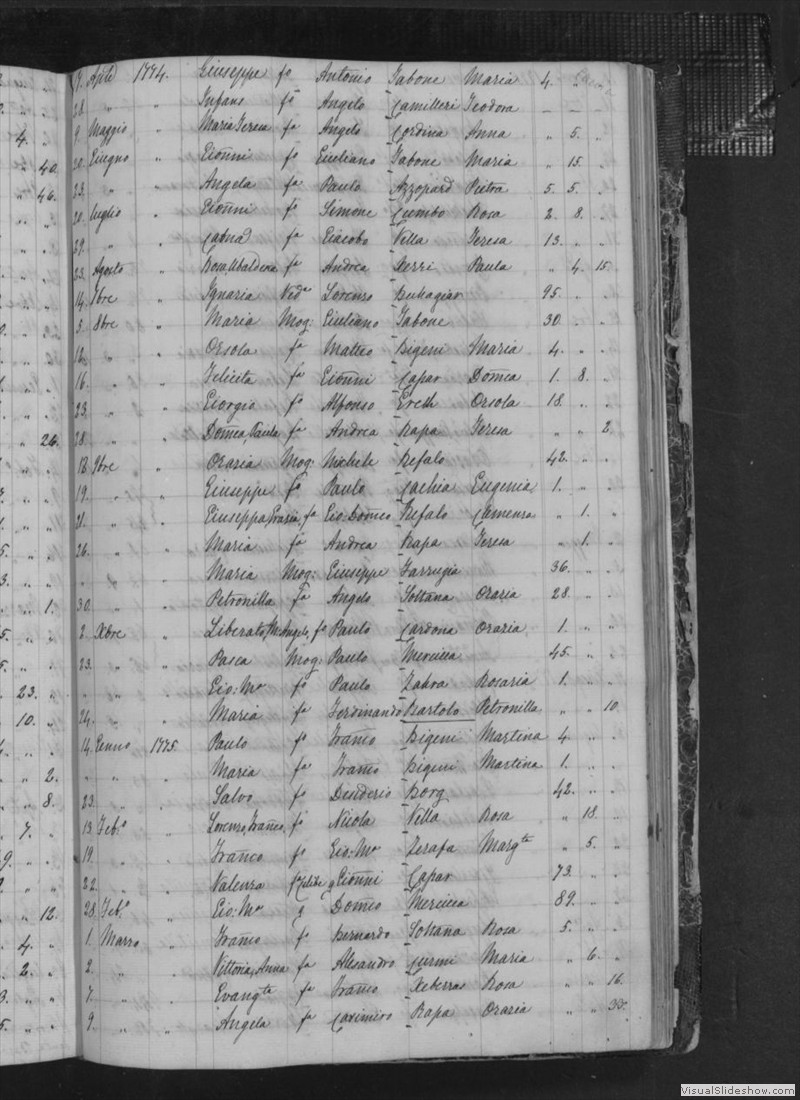 17. Aple 1774. Giuseppe fo Antonio Tabone Maria 4. "
28. " " Infans fo Angelo Camilleri Teodora — — —
4. 9. Maggio " Maria Teresa fa Angelo Cordina Anna " 5. "
40. 20. Giugno " Gionni fo Giuliano Tabone Maria " 15. "
46. 23. " " Angela fa Paulo Azzopard Pietra 5. 5. "
20. Luglio " Gionni fo Simone Cumbo Rosa 2. 8. "
29. " " fa Giacobo Vella Teresa 13. " "
23. Agosto " Rosa Ubaldesca fa Andrea Zerri Paula " 4. 15.
14. 7bre " Ignazia Veda Lorenzo Buhagiar 95. " "
5. 8bre " Maria Mog: Giuliano Tabone 30. " "
12. " " Orsola fa Matteo Bigeni Maria 4. " "
16. " " Felicita fa Gionni Capar Domca 1. 8. "
23. " " Giorgio fo Alfonso Grech Orsola 18. " "
26. 28. " " Domca Paula fa Andrea Rapa Teresa " " 2.
18 9bre " Grazia Mog: Michele Refalo 42. " "
19. " " Giuseppe fo Paulo Cachia Eugenia 1. " "
21. " " Giuseppa Grazia fa Gio: Domco Refalo Camensa " 1. "
26. " " Maria fa Andrea Rapa Teresa " 1. "
" " " Maria Mog: Giuseppe Farrugia 36. " "
1. 30. " " Petronilla fa Angelo Soltana Grazia 28. " "
2. Xbre " Liberato, Mc Angelo, fo Paulo Cardona Grazia 1. " "
23. " " Pasca Mog: Paulo Mercieca 45. " "
23. " " " Gio: Ma fo Paulo Zahra Rosaria 1. " "
10. 24. " " Maria fa Ferdinando Bartolo Petronilla " " 10
14. Gennro 1775. Paulo fo Franco Bigeni Martina 4 " "
2. " " " Maria fa Franco Bigeni Martina 1. " "
8. 23. " " Salvo fo Desiderio Borg 42. " "
7. 13. Feb.o " Lorenzo, Franco, fo Nicola Vella Rosa " 18. "
19. " " Franco fo Gio: Ma Zerafa Margta " 5. "
22. " " Valenza fa Gionni Capar 73. " "
12. 28. Feb.o " Gio: Ma q Domco Mercieca 89. " "
4. 1. Marzo " Franco fo Bernardo Soltana Rosa 5. " "
2. 2. " " Vittoria, Anna fa Alesandro Curmi Maria " 6. "
7. " " Evangta fa Franco Xeberras Rosa " " 16.
9. " " Angela fa Casimiro Rapa Grazia " " 30.
VisualSlideshow.com